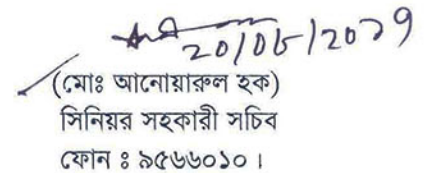 20/06/2019
(মোঃ আনোয়ারুল হক)
সিনিয়র সহকারী সচিব
ফোন ঃ ৯৫৬৬০১০।